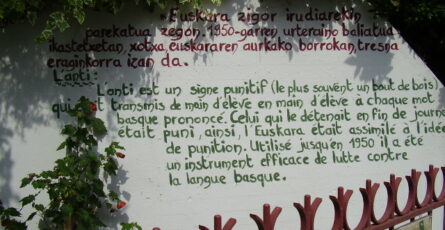 Euskara zigor irudiarekin
parekatua zegon. 1950-garren urteraino baliatua
ikastetxetan, xotxa euskararen aurkako borrokan, tresna
eraginkorra izan da.
L'anti:
L'anti est un signe punitif (le plus souvent un bout de bois)
qui est transmis de main d'élève en main d'élève à chaque mot
basque prononcé. Celui qui le détenait en fin de journée
était puni, ainsi, l'Euskara était assimilé à l'idée
de punition. Utilisé jusqu'en 1950 il a été
un instrument efficace de lutte contre
la langue basque.